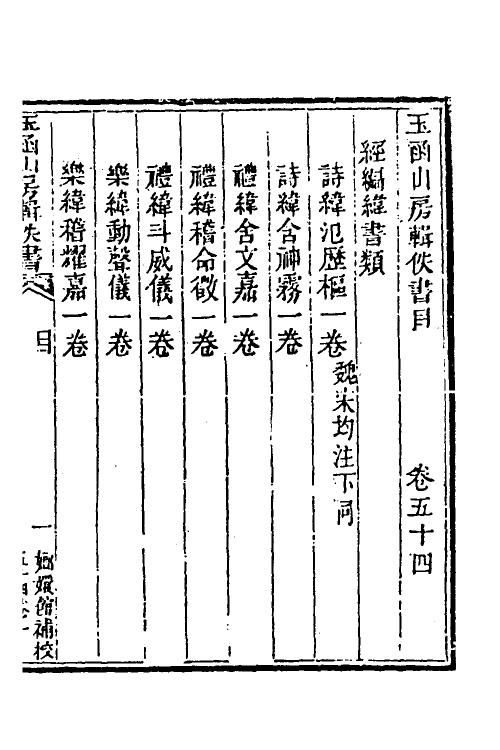 玉函山房輯佚書目　卷五十四
經編緯書類
詩緯氾歷樞一卷 魏宋均注下同
詩緯含神霧一卷
禮緯含文嘉一卷
禮緯稽命徵一卷
禮緯斗威儀一卷
樂緯動聲儀一卷
樂緯稽耀嘉一卷
玉函山房輯佚書 目 一
嫏嬛館補校